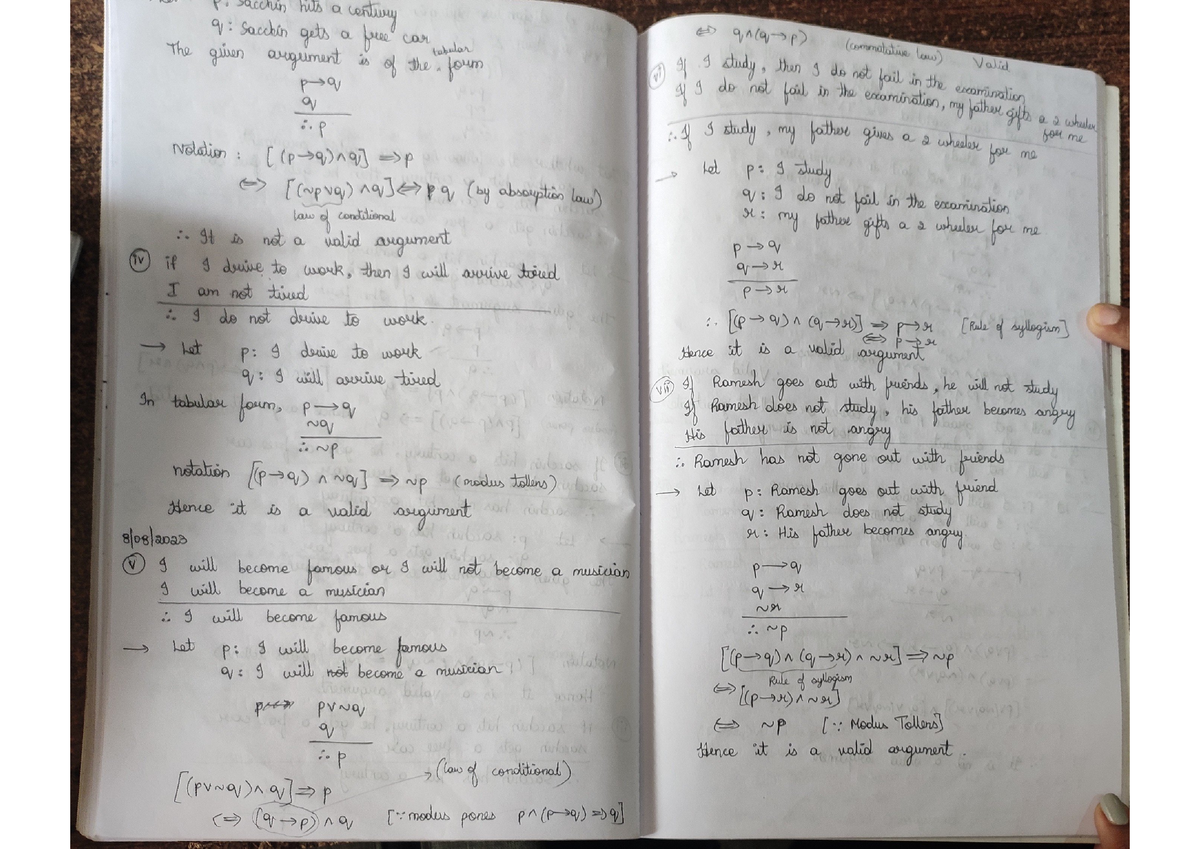 p: Sacchin hits a century
q: Sacchin gets a free car
The given argument is of the tabular form
p→q
q
∴ p
Notation : [(p→q)∧q] ⇒p
⇔ [(~p∨q) ∧q]⇔ q (by absorption law)
law of conditional
∴ It is not a valid argument
iv if I drive to work, then I will arrive tired
I am not tired
∴ I do not drive to work.
→ Let p: I drive to work
q: I will arrive tired
In tabular form, p→q
~q
∴ ~p
notation [(p→q) ∧ ~q] ⇒ ~p (modus tollens)
Hence it is a valid argument
8/08/2023
v I will become famous or I will not become a musician
I will become a musician
∴ I will become famous
→ Let p: I will become famous
q: I will not become a musician
p∨~q
q
∴ p
(law of conditional)
[(p∨~q)∧q]⇒p
⇔ (q→p)∧q [∵modus pones p∧(p→q)⇒q]
⇔ q∧(q→p) (commutative law) Valid
vi If I study, then I do not fail in the examination
If I do not fail in the examination, my father gifts a 2 wheeler for me
∴ If I study, my father gives a 2 wheeler for me
→ Let p: I study
q: I do not fail in the examination
r: my father gifts a 2 wheeler for me
p→q
q→r
p→r
∴ [(p→q)∧(q→r)] ⇒ p→r [Rule of syllogism]
⇔ p→r
Hence it is a valid argument
vii If Ramesh goes out with friends, he will not study
If Ramesh does not study, his father becomes angry
His father is not angry
∴ Ramesh has not gone out with friends
→ Let p: Ramesh goes out with friend
q: Ramesh does not study
r: His father becomes angry
p→q
q→r
~r
∴ ~p
[(p→q)∧(q→r)∧~r]⇒~p
Rule of syllogism
⇔ [(p→r)∧~r]
⇔ ~p [∵ Modus Tollers]
Hence it is a valid argument.